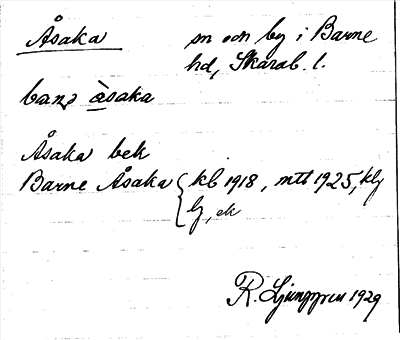 Åsaka sn och by i Barne
hd, Skarab. l.
banə àsaka
Åsaka bek
Barne Åsaka { kb 1918, mtb 1925, klj
lj, ek
R. Ljunggren 1929